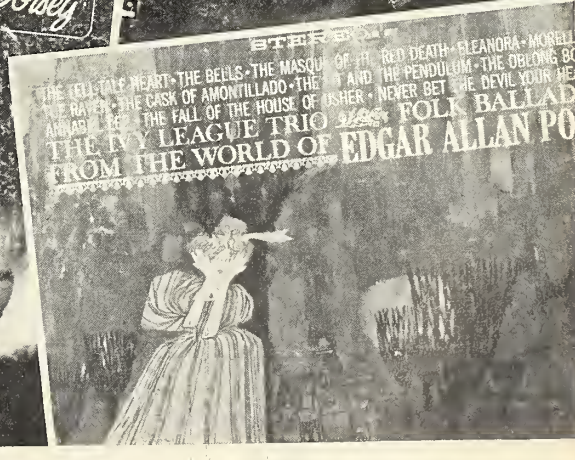 Dorsey
STEREO
THE TELL-TALE HEART • THE BELLS • THE MASQUE OF THE RED DEATH • ELEANORA • MORELL
THE RAVEN • THE CASK OF AMONTILLADO • THE PIT AND THE PENDULUM • THE OBLONG BO
ANNABEL LEE • THE FALL OF THE HOUSE OF USHER • NEVER BET THE DEVIL YOUR HEA
THE IVY LEAGUE TRIO FOLK BALLAD
FROM THE WORLD OF EDGAR ALLAN PO